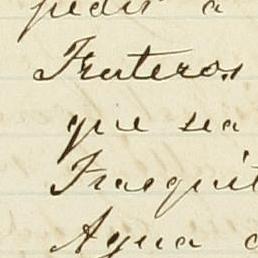 pedir a
Fruteros
que sea
Frasquit
Agua